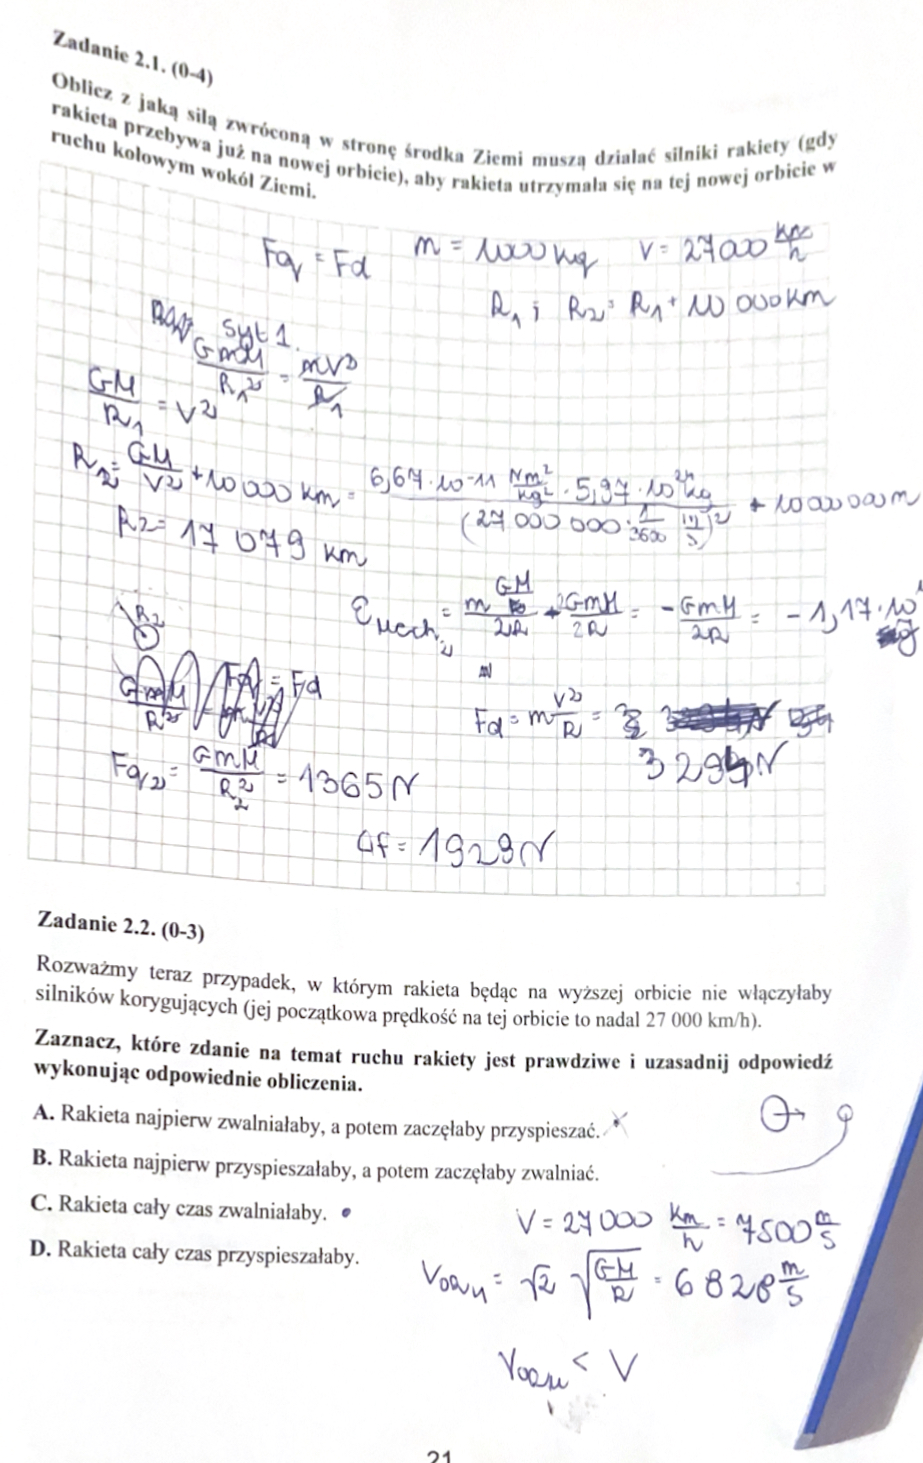 Zadanie 2.1. (0-4)
Oblicz z jaką siłą zwróconą w stronę środka Ziemi muszą działać silniki rakiety (gdy
rakieta przebywa już na nowej orbicie), aby rakieta utrzymała się na tej nowej orbicie w
ruchu kołowym wokół Ziemi.
Fg = Fd m = 1000 kg V = 27000 km/h
R₁ i R₂ = R₁ + 10 000 km
syt 1.
GmM/R₁² = mV²/R₁
GM/R₁ = V²
R₂ = GM/V² + 10 000 km = 6,67 · 10⁻¹¹ Nm²/kg² · 5,97 · 10²⁴ kg / (27 000 000 · 1/3600 m/s)² + 10 000 000 m
R2 = 17 079 km
R₂
= Fd
Fd = m V²/R = 3294 N
Fg₂ = GmM/R₂² = 1365 N
ΔF = 1929 N
Zadanie 2.2. (0-3)
Rozważmy teraz przypadek, w którym rakieta będąc na wyższej orbicie nie włączyłaby
silników korygujących (jej początkowa prędkość na tej orbicie to nadal 27 000 km/h).
Zaznacz, które zdanie na temat ruchu rakiety jest prawdziwe i uzasadnij odpowiedź
wykonując odpowiednie obliczenia.
A. Rakieta najpierw zwalniałaby, a potem zaczęłaby przyspieszać.
B. Rakieta najpierw przyspieszałaby, a potem zaczęłaby zwalniać.
C. Rakieta cały czas zwalniałaby.
D. Rakieta cały czas przyspieszałaby.
V = 27000 km/h = 7500 m/s
= √2 √GM/R = 6828 m/s
< V
21